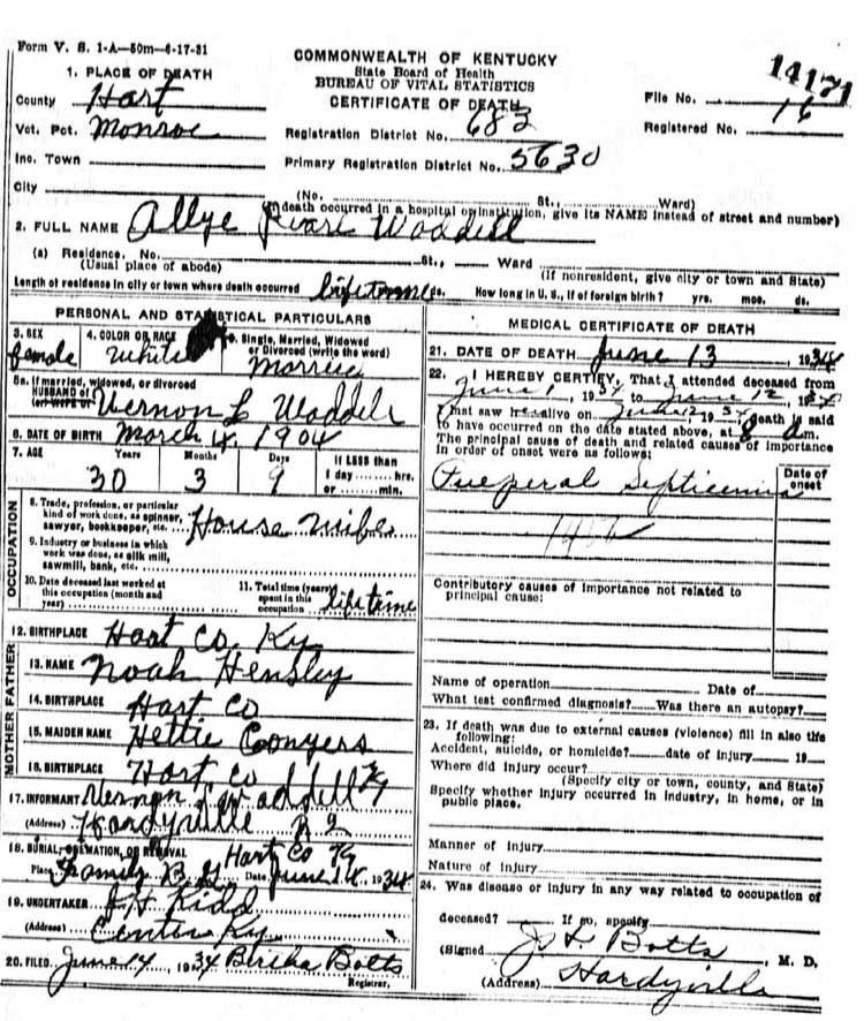 Form V. S. 1-A—50m—6-17-31
COMMONWEALTH OF KENTUCKY
State Board of Health
BUREAU OF VITAL STATISTICS
CERTIFICATE OF DEATH
14171
File No.
Registered No. 16
1. PLACE OF DEATH
County Hart
Vot. Pct. Monroe
Inc. Town
City
Registration District No. 683
Primary Registration District No. 5630
(No. St., Ward)
(If death occurred in a hospital or institution, give its NAME instead of street and number)
2. FULL NAME Allye Pearl Waddell
(a) Residence. No. St., Ward
(Usual place of abode) (If nonresident, give city or town and State)
Length of residence in city or town where death occurred lifetime ds. How long in U. S., if of foreign birth? yrs. mos. ds.
PERSONAL AND STATISTICAL PARTICULARS
3. SEX 4. COLOR OR RACE 5. Single, Married, Widowed
or Divorced (write the word)
female White Married
5a. If married, widowed, or divorced
HUSBAND of
(or WIFE of Vernon L Waddell
6. DATE OF BIRTH March 4, 1904
7. AGE Years Months Days If LESS than
1 day hrs.
or min.
30 3 9
OCCUPATION
8. Trade, profession, or particular
kind of work done, as spinner,
sawyer, bookkeeper, etc. House wife
9. Industry or business in which
work was done, as silk mill,
sawmill, bank, etc.
10. Date deceased last worked at
this occupation (month and
year)
11. Total time (years)
spent in this
occupation lifetime
12. BIRTHPLACE Hart Co. Ky
FATHER
13. NAME Noah Hensley
14. BIRTHPLACE Hart Co
MOTHER
15. MAIDEN NAME Hettie Conyers
16. BIRTHPLACE Hart Co Ky
17. INFORMANT Vernon L Waddell
(Address) Hardyville R 2
18. BURIAL, CREMATION, OR REMOVAL Hart Co Ky
Place Family B. G. Date June 14, 1934
19. UNDERTAKER Kidd
(Address) Center Ky
20. FILED June 14, 1934 Bertha Botts
Registrar.
MEDICAL CERTIFICATE OF DEATH
21. DATE OF DEATH June 13, 1934
22. I HEREBY CERTIFY, That I attended deceased from
June 1, 1934 to June 12, 1934
I last saw her alive on June 12 1934, death is said
to have occurred on the date stated above, at 8 a m.
The principal cause of death and related causes of importance
in order of onset were as follows:
Date of
onset
Pueperal Septicemia
Contributory causes of importance not related to
principal cause:
Name of operation Date of
What test confirmed diagnosis? Was there an autopsy?
23. If death was due to external causes (violence) fill in also the
following:
Accident, suicide, or homicide? date of injury 19
Where did injury occur?
(Specify city or town, county, and State)
Specify whether injury occurred in industry, in home, or in
public place.
Manner of injury
Nature of injury
24. Was disease or injury in any way related to occupation of
deceased? If so, specify
(Signed Botts, M. D.
(Address) Hardyville